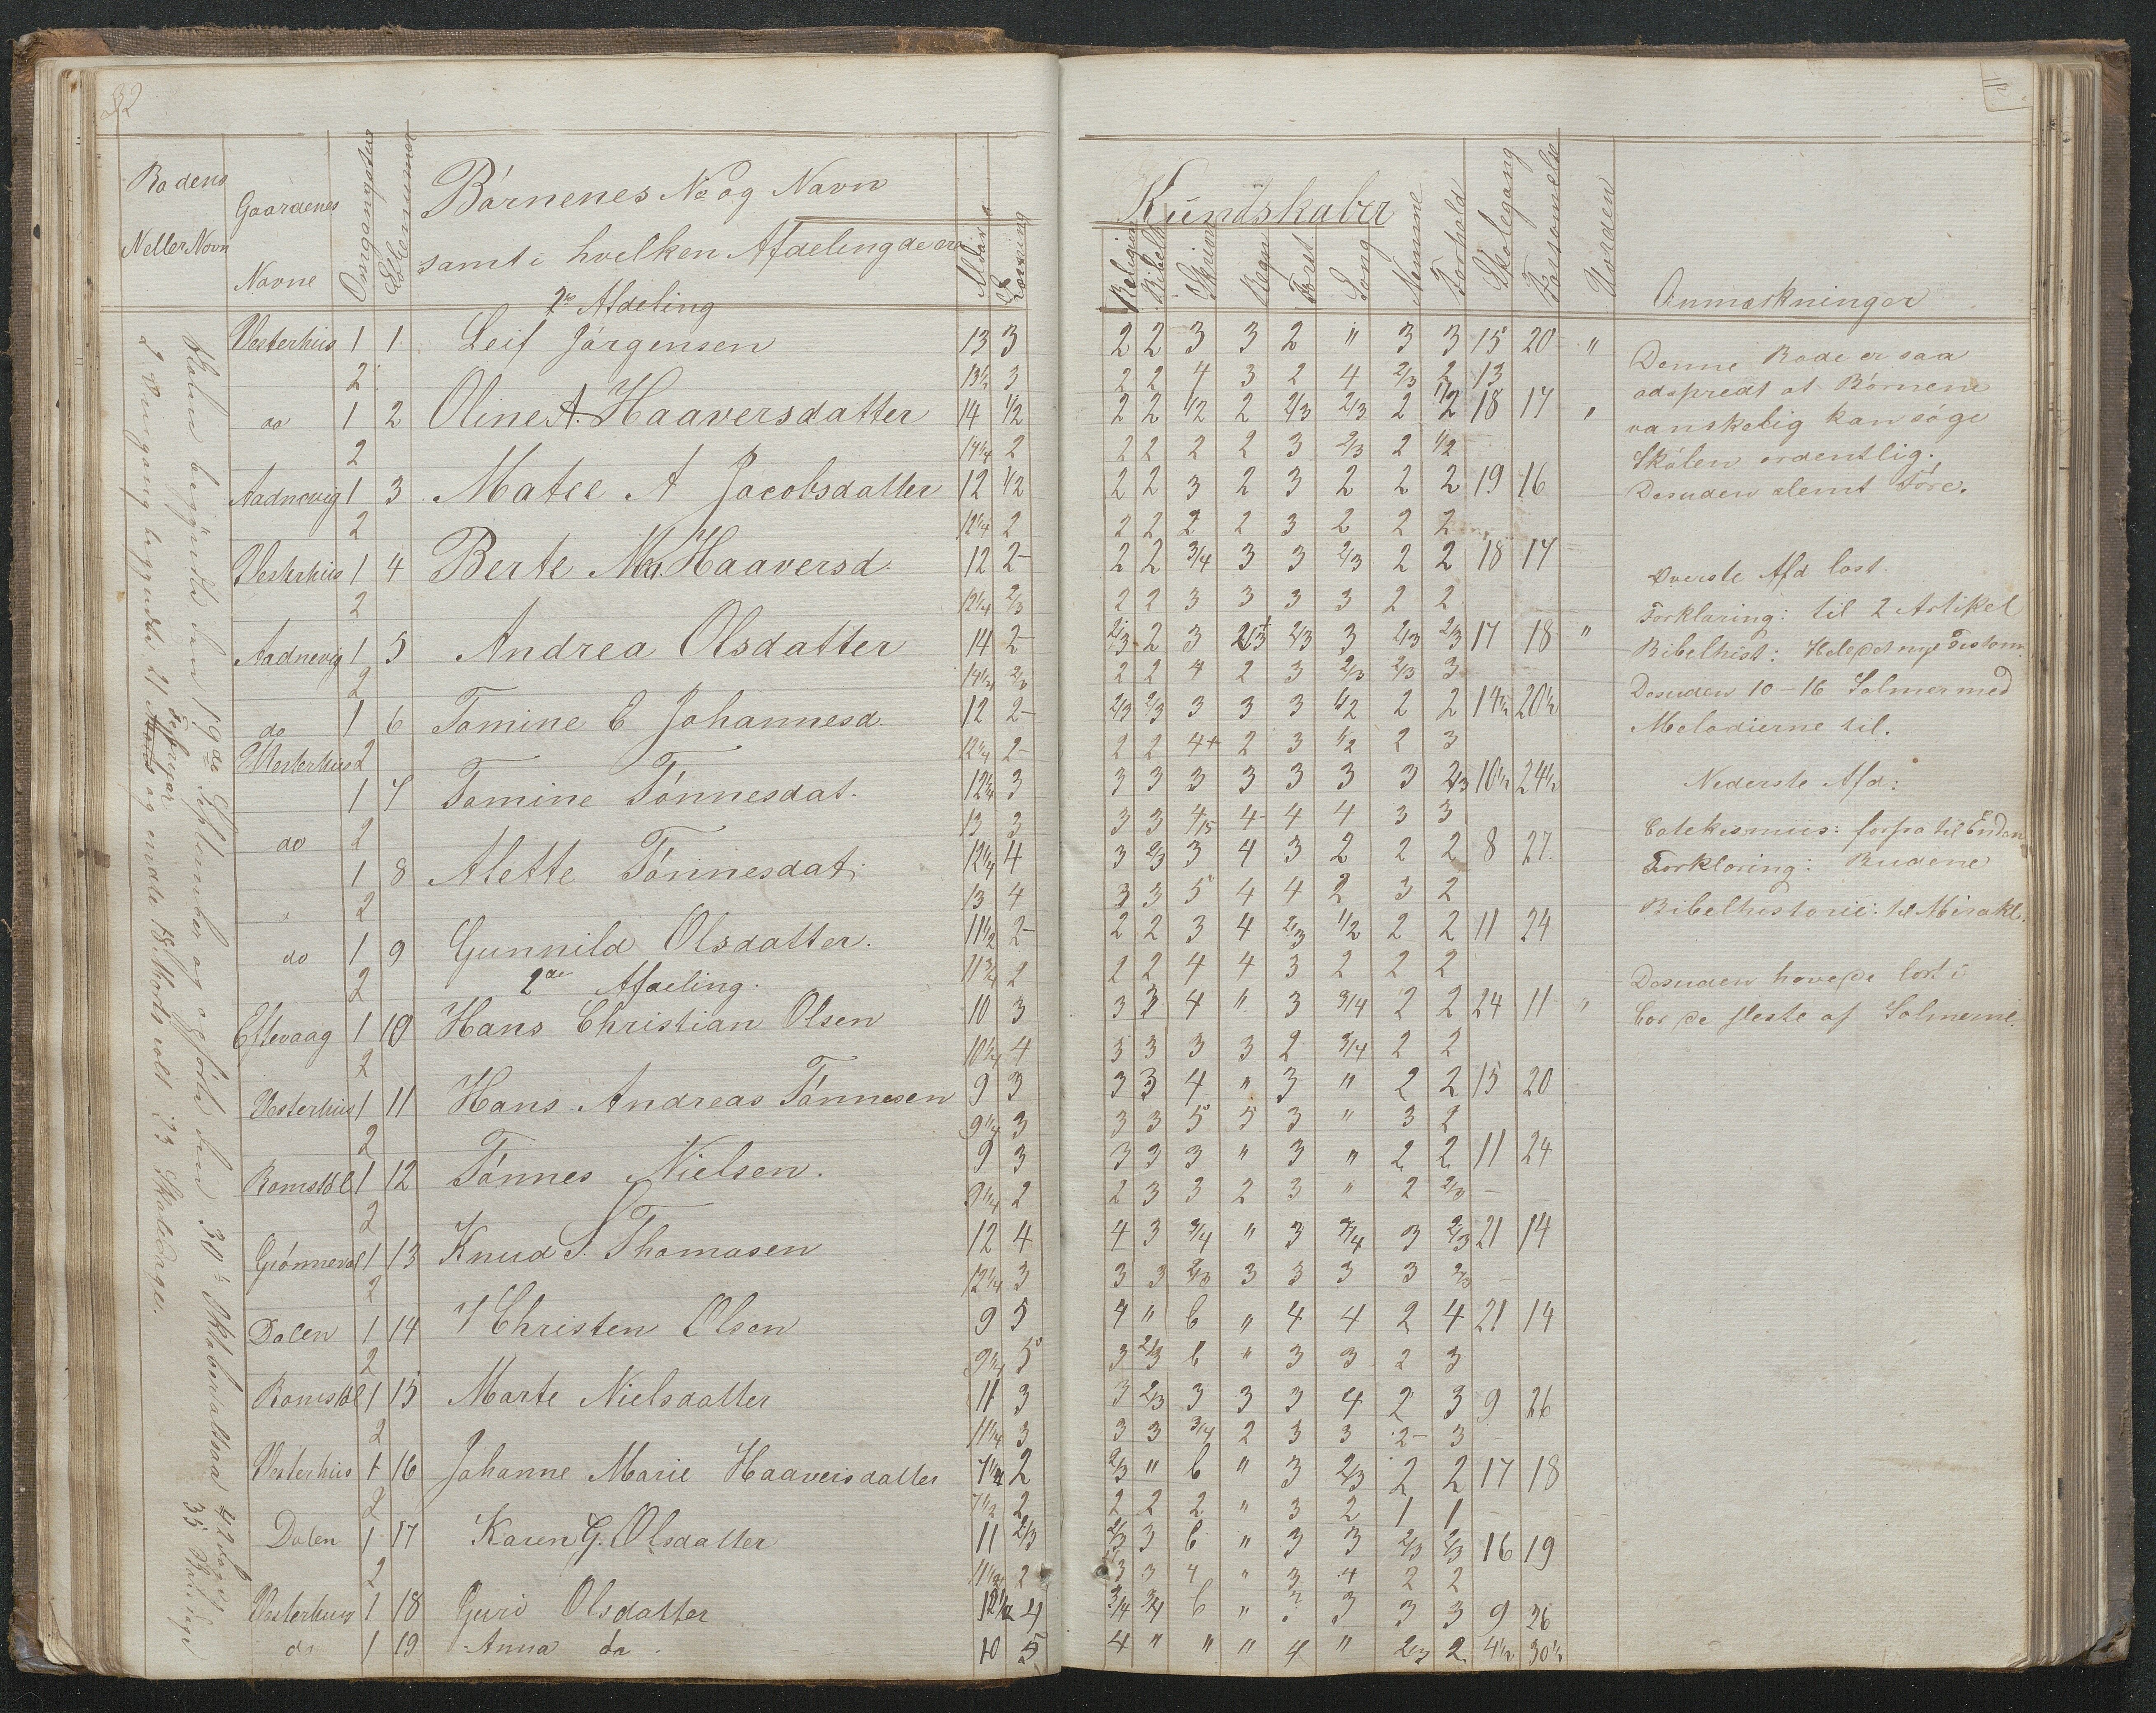 32
Rodens
N eller Navn
Gaardenes
Navne
Omgangsetur
Løbenummer
Børnenes No og Navn
samt i hvilken Afdeling de ere
Alder
Læsning
1ste Afdeling
Vesterhus 1 1 Leif Jørgensen 13 3
2 13½ 3
do 1 2 Oline A. Haaversdatter 14 1/2
2 14¼ 2
Aadnevig 1 3 Matee A Jacobsdatter 12 1/2
2 12¼ 2
Vesterhus 1 4 Berte M. Haaversd. 12 2-
2 12¼ 2/3
Aadnevig 1 5 Andrea Olsdatter 14 2-
2 14¼ 2/3
do 1 6 Tomine E Johannesd. 12 2-
Vesterhus 2 12¼ 2-
1 7 Tomine Tønnesdat. 12¼ 3
do 2 13 3
1 8 Alette Tønnesdat. 12¼ 4
2 13 4
do 1 9 Gunnild Olsdatter. 11½ 2-
2 11¾ 2
2den Afdeling.
Eftevaag 1 10 Hans Christian Olsen 10 3
2 10¼ 4
Vesterhus 1 11 Hans Andreas Tønnesen 9 3
2 9¼ 3
Romsdøl 1 12 Tønnes Nielsen. 9 3
2 9¼ 2
Grønnevol 1 13 Knud S. Thomasen 12 4
2 12¼ 3
Dolen 1 14 Christen Olsen 9 5
2 9¼ 5
Romsdøl 1 15 Marte Nielsdatter 11 3
2 11¼ 3
Vesterhus 1 16 Johanne Marie Haaversdatter 7¼ 2
2 7½ 2
Dolen 1 17 Karen G. Olsdatter 11 2/3
2 11¼ 2
Vesterhus 1 18 Guro Olsdatter 12½ 4
do 1 19 Anna do. 10 5
Skolen begyndte den 19de September og ophørte den 30te Oktober altsaa 42 dage
35 Skoledage
2 Omgang begyndte 21 Februar og endte 18 Marts ialt 23 Skoledage.
Kundskaber
Religion
Bibelh
Skrivn
Regn
Forst
Sang
Nemme
Forhold
Skolegang
Forsømmelse
Uorden
Anmærkninger
2 2 3 3 2 " 3 3 15 20 "
2 2 4 3 2 4 2/3 2 13
2 2 1/2 2 2/3 2/3 2 1/2 18 17 "
2 2 2 2 3 2/3 2 1/2
2 2 3 2 3 2 2 2 19 16
2 2 2 2 3 2 2 2
2 2 3/4 3 3 2/3 2 2 18 17
2 2 3 3 3 3 2 2
2/3 2 3 2/3 2/3 3 2/3 2/3 17 18 "
2 2 4 2 3 2/3 2/3 3
2/3 2/3 3 3 3 1/2 2 2 14½ 20½
2 2 4+ 2 3 1/2 2 3
3 3 3 3 3 3 3 2/3 10½ 24½
3 3 4/5 4 4 4 3 3
3 2/3 3 4 3 2 2 2 8 27
3 3 5 4 4 2 3 2
2 2 3 4 2/3 1/2 2 2 11 24
2 2 4 4 3 2 2 2
3 3 4 " 3 3/4 2 2 24 11 "
3 3 3 3 2 3/4 2 2
3 3 4 " 3 " 2 2 15 20
3 3 5 5 3 " 3 2
3 3 3 " 3 " 2 2 11 24
2 3 3 2 3 " 2 2/3 -
4 3 3/4 " 3 3/4 3 2/3 21 14
3 3 2/3 3 3 3 3 2/3 -
4 " b " 4 4 2 4 21 14
3 2/3 b " 3 3 2 3
3 2/3 3 3 3 4 2 3 9 26
3 3 3/4 2 3 3 2- 3
2/3 " b " 3 2/3 2 2 17 18
2 2 2 " 3 2 1 1 -
2/3 3 b " 3 3 2/3 2/3 16 19
3 3 4 " 3 4 2 2
3/4 3/4 b " 3 3 3 3 9 26
4 " " " 4 " 2/3 2 4½ 30½
Denne Rode er saa
adspredt at Børnene
vanskelig kan søge
Skolen ordentlig.
Desuden slemt Føre.
Øverste Afd læst.
Forklaring: til 2 Artikel
Bibelhist: Hele det nye Testam.
Desuden 10-16 Salmer med
Melodierne til.
Nederste Afd:
Catekismus: forfra til Enden
Forklaring: Budene
Bibelhistorie: til Mirakl.
Desuden have de lært i
Cor de fleste af Salmerne.